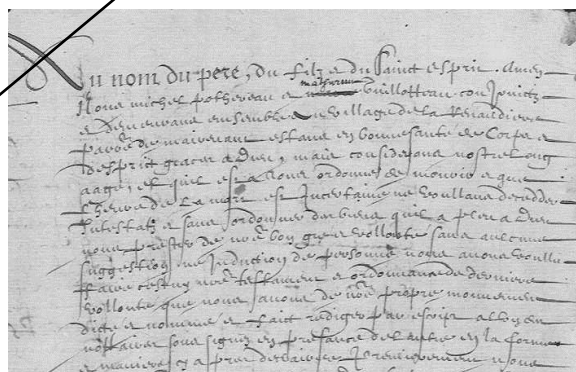 Au nom du pere, du filz et du Sainct esprit. Amen
Nous michel pothereau et mathurine Guillotteau conjoinctz
et demeurans ensemble au village de la Renaudiere
paroisse de estans en bonne sante de Corps et
desprit graces a Dieu, mais considerans nostre long
aage, et quil est a tous ordonne de mourir et que
lheure de la mort est Incertaine ne voullans decedder
Intestatz et sans ordonner du bien quil a pleu a Dieu
nous prester de nostre bon gre et vollonte sans aucune
suggestion ne Induction de personne nous avons voullu
faire cestuy nostre testament et ordonnance de derniere
vollonte que nous avons de nostre propre mouvement
dicte et nomme et faict rediger par escript alby en
nottaire soubz signez en presance de lautre en la forme
et maniere cy apres